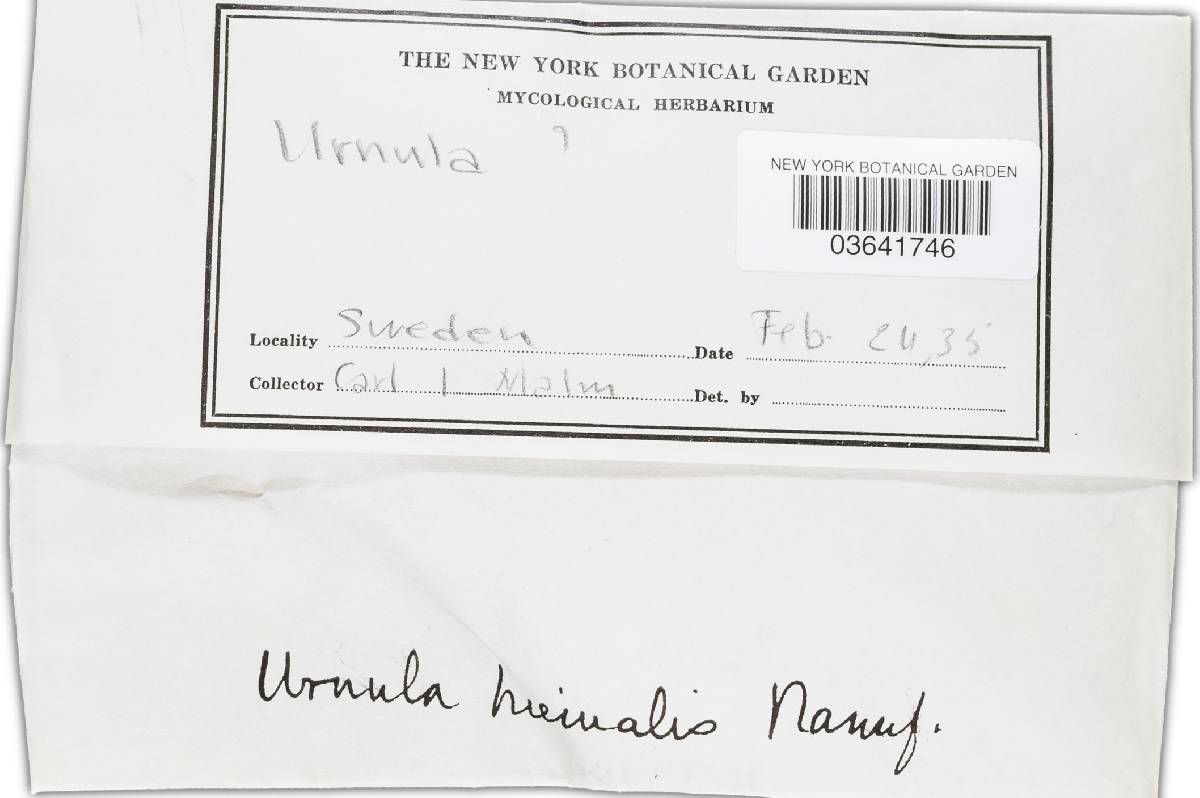 THE NEW YORK BOTANICAL GARDEN
MYCOLOGICAL HERBARIUM
Urnula ?
NEW YORK BOTANICAL GARDEN
03641746
Locality Sweden Date Feb. 24, 35
Collector Carl I Malm Det. by
Urnula hiemalis Nannf.